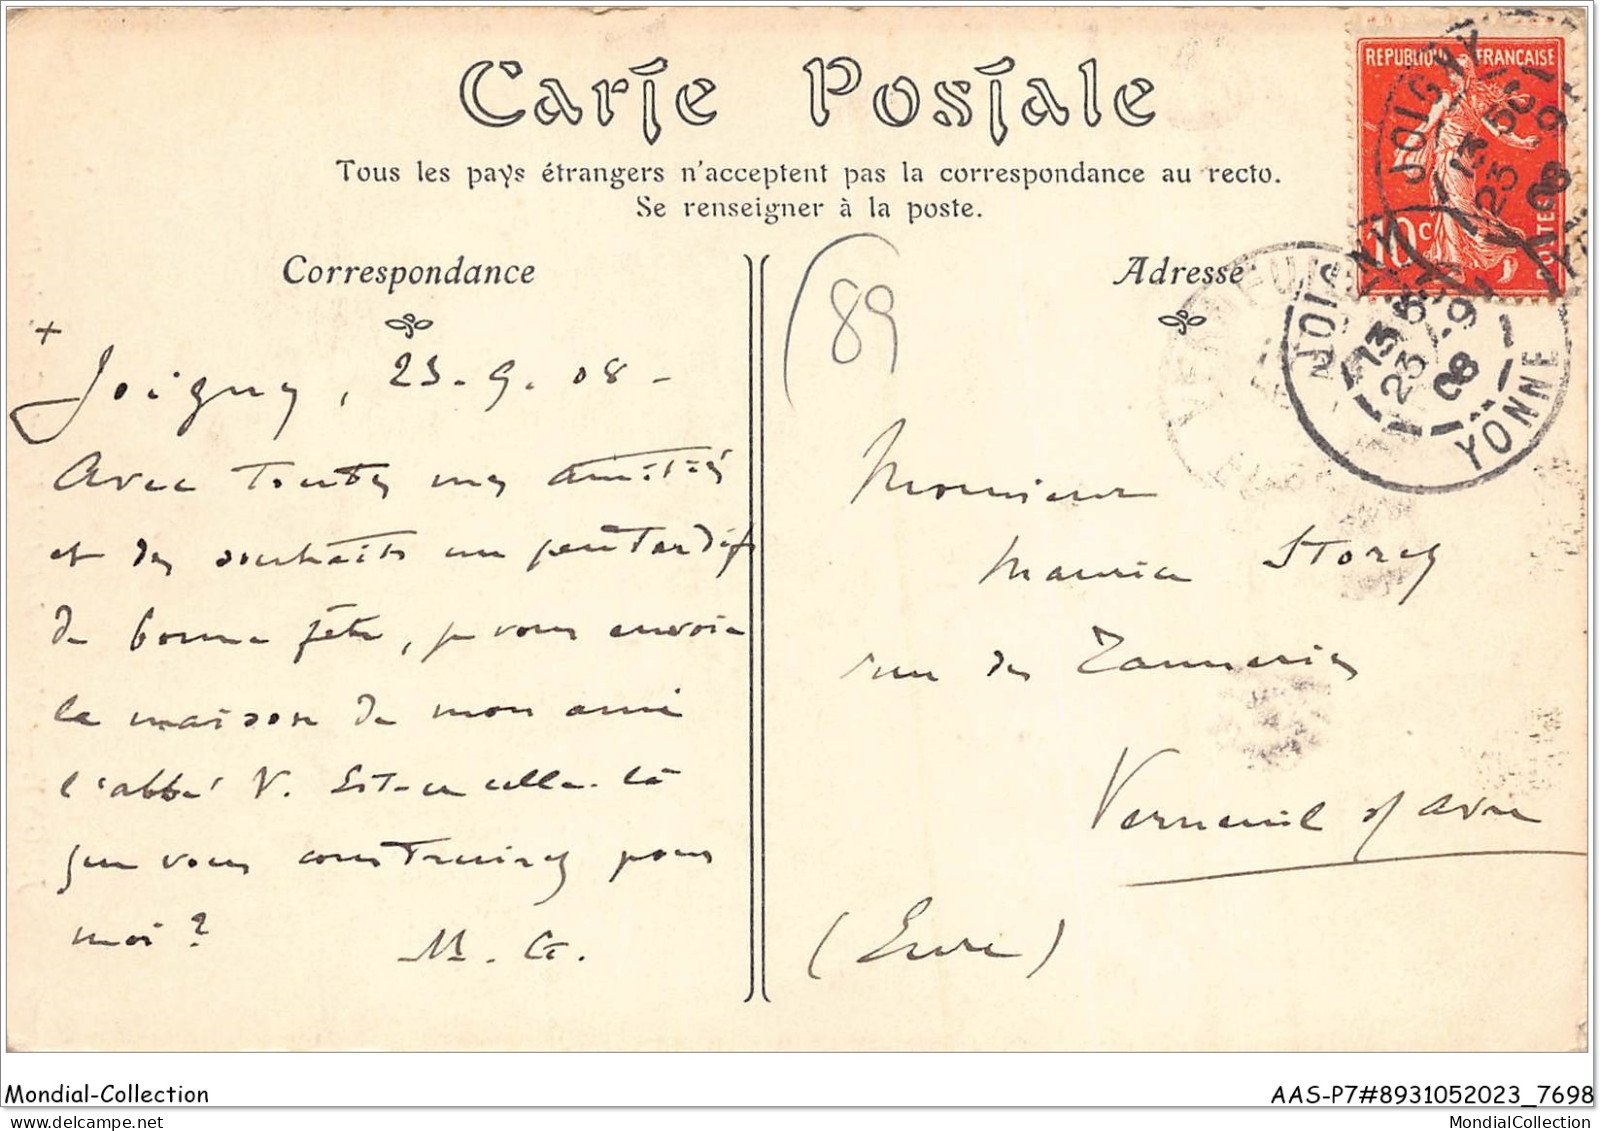 Carte Postale
Tous les pays étrangers n'acceptent pas la correspondance au recto.
Se renseigner à la poste.
Correspondance
Adresse
REPUBLIQUE FRANCAISE
10c
POSTE
JOIGNY
13 50
23 -9
08
JOIGNY
13 5
23 -9
08
YONNE
89
+
Joigny, 23.9.08 -
Avec toutes mes amitiés
et des souhaits un peu tardifs
de bonne fête, je vous envoie
la maison de mon ami
l'abbé V. Est-ce celle-là
que vous construirez pour
moi ?
M. G.
Monsieur
Maurice Storez
rue des Tanneries
Verneuil s/ Avre
(Eure)
Mondial-Collection
AAS-P7#8931052023_7698
myriam62
MondialCollection